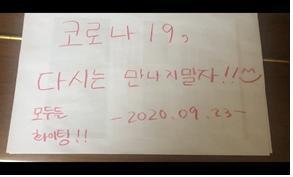 코로나 19,
다시는 만나지말자!!
모두들 -2020.09.23-
화이팅!!